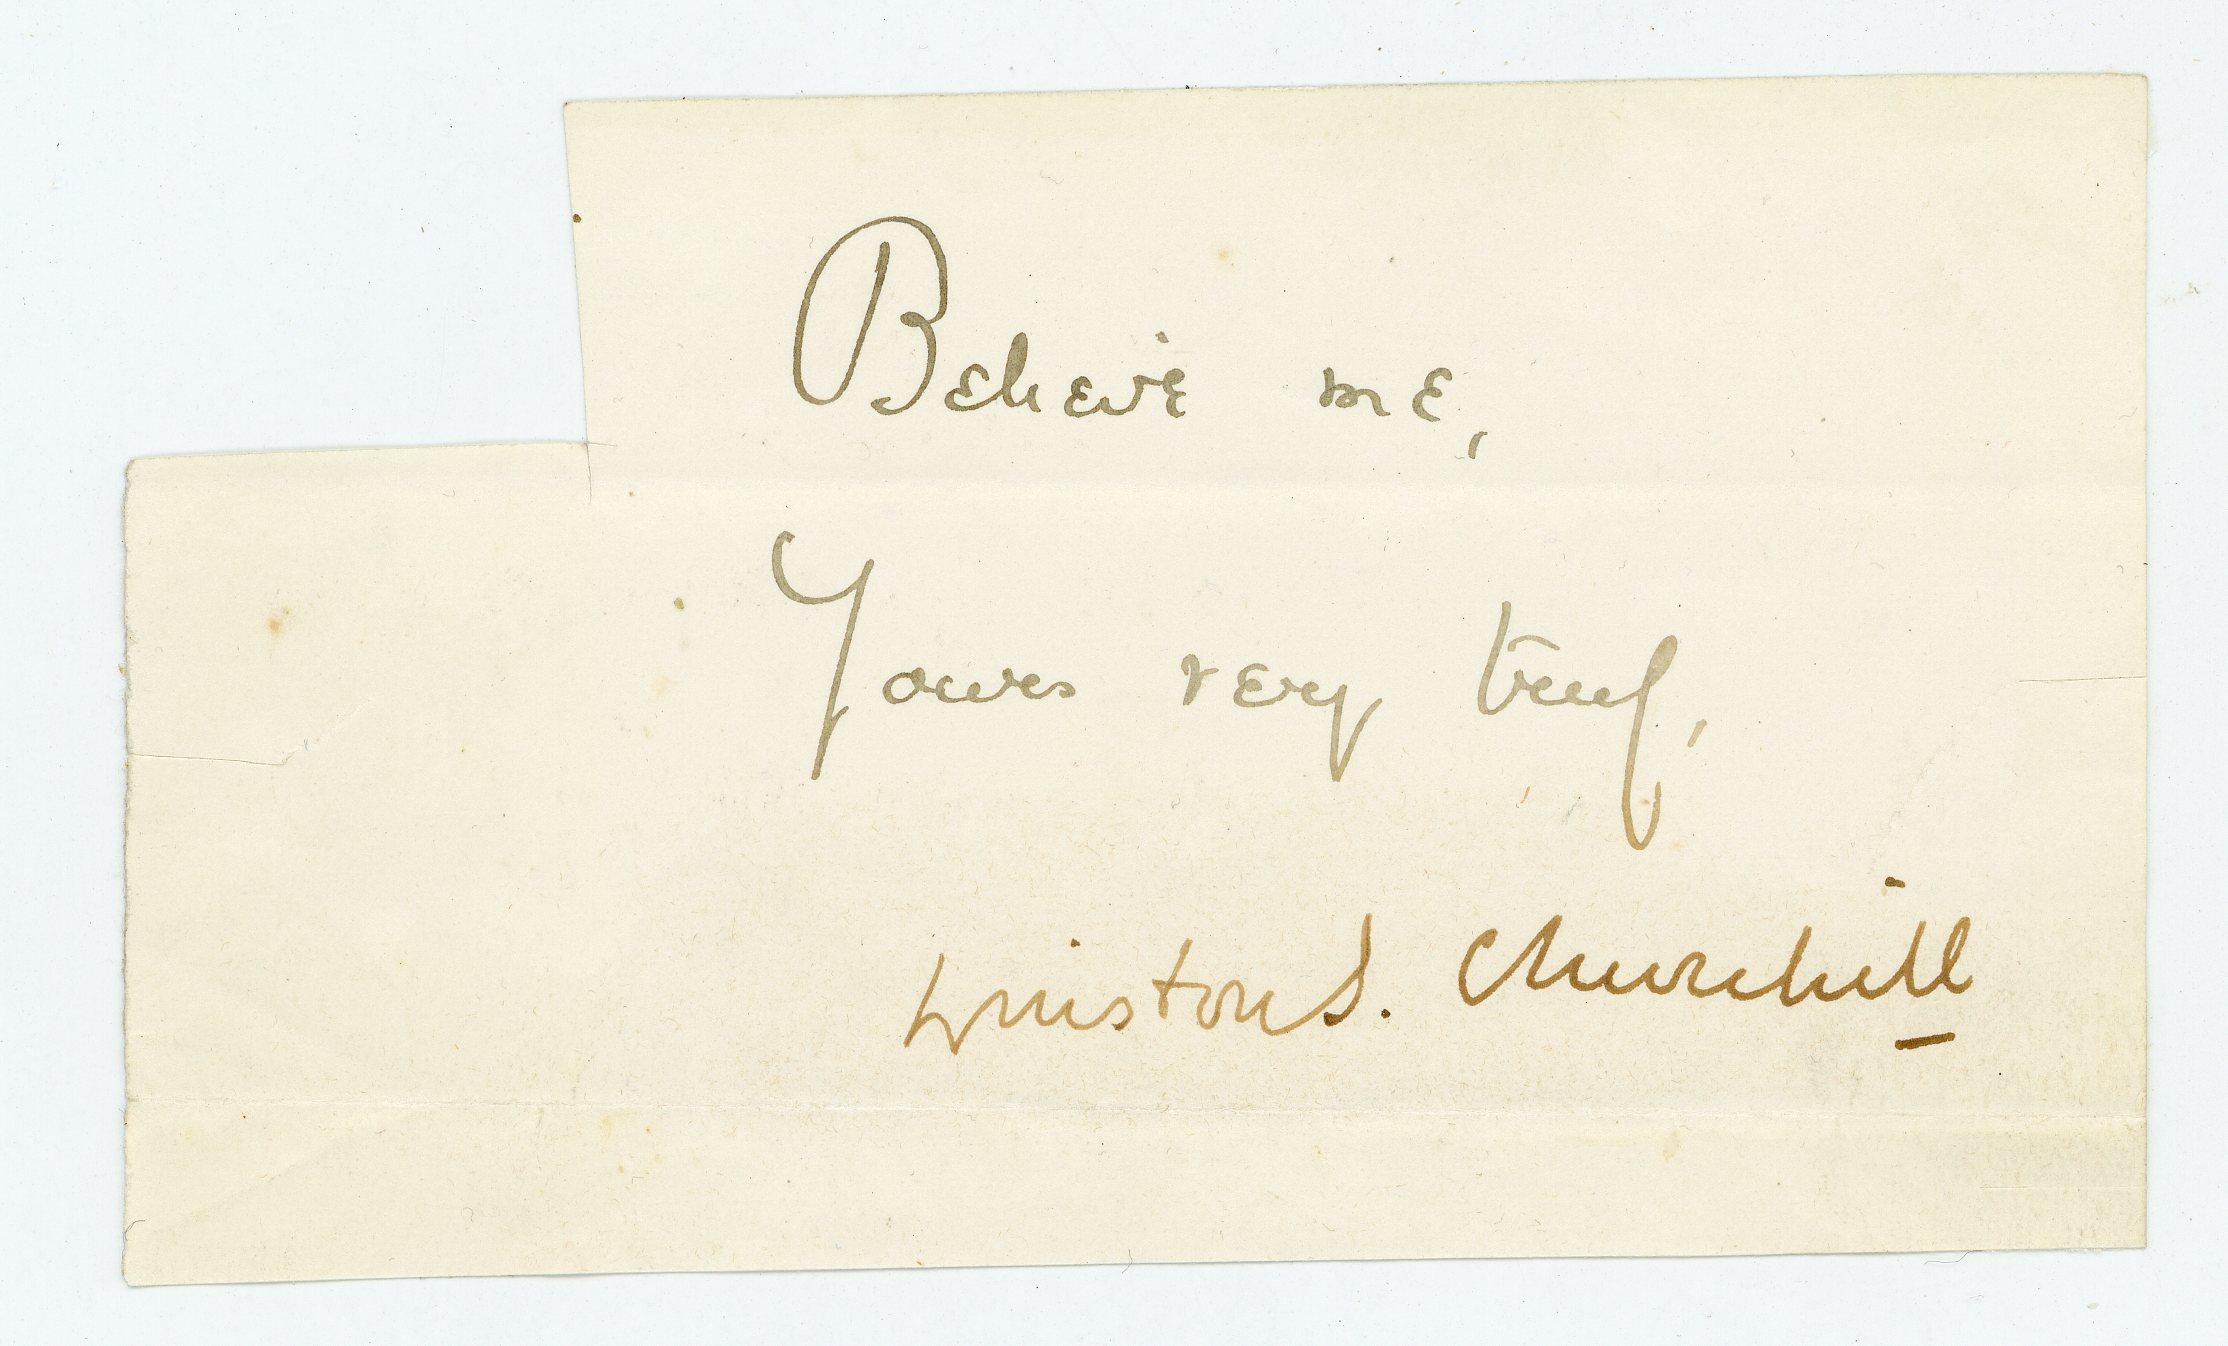 Believe me,
Yours very truly,
Winston S. Churchill